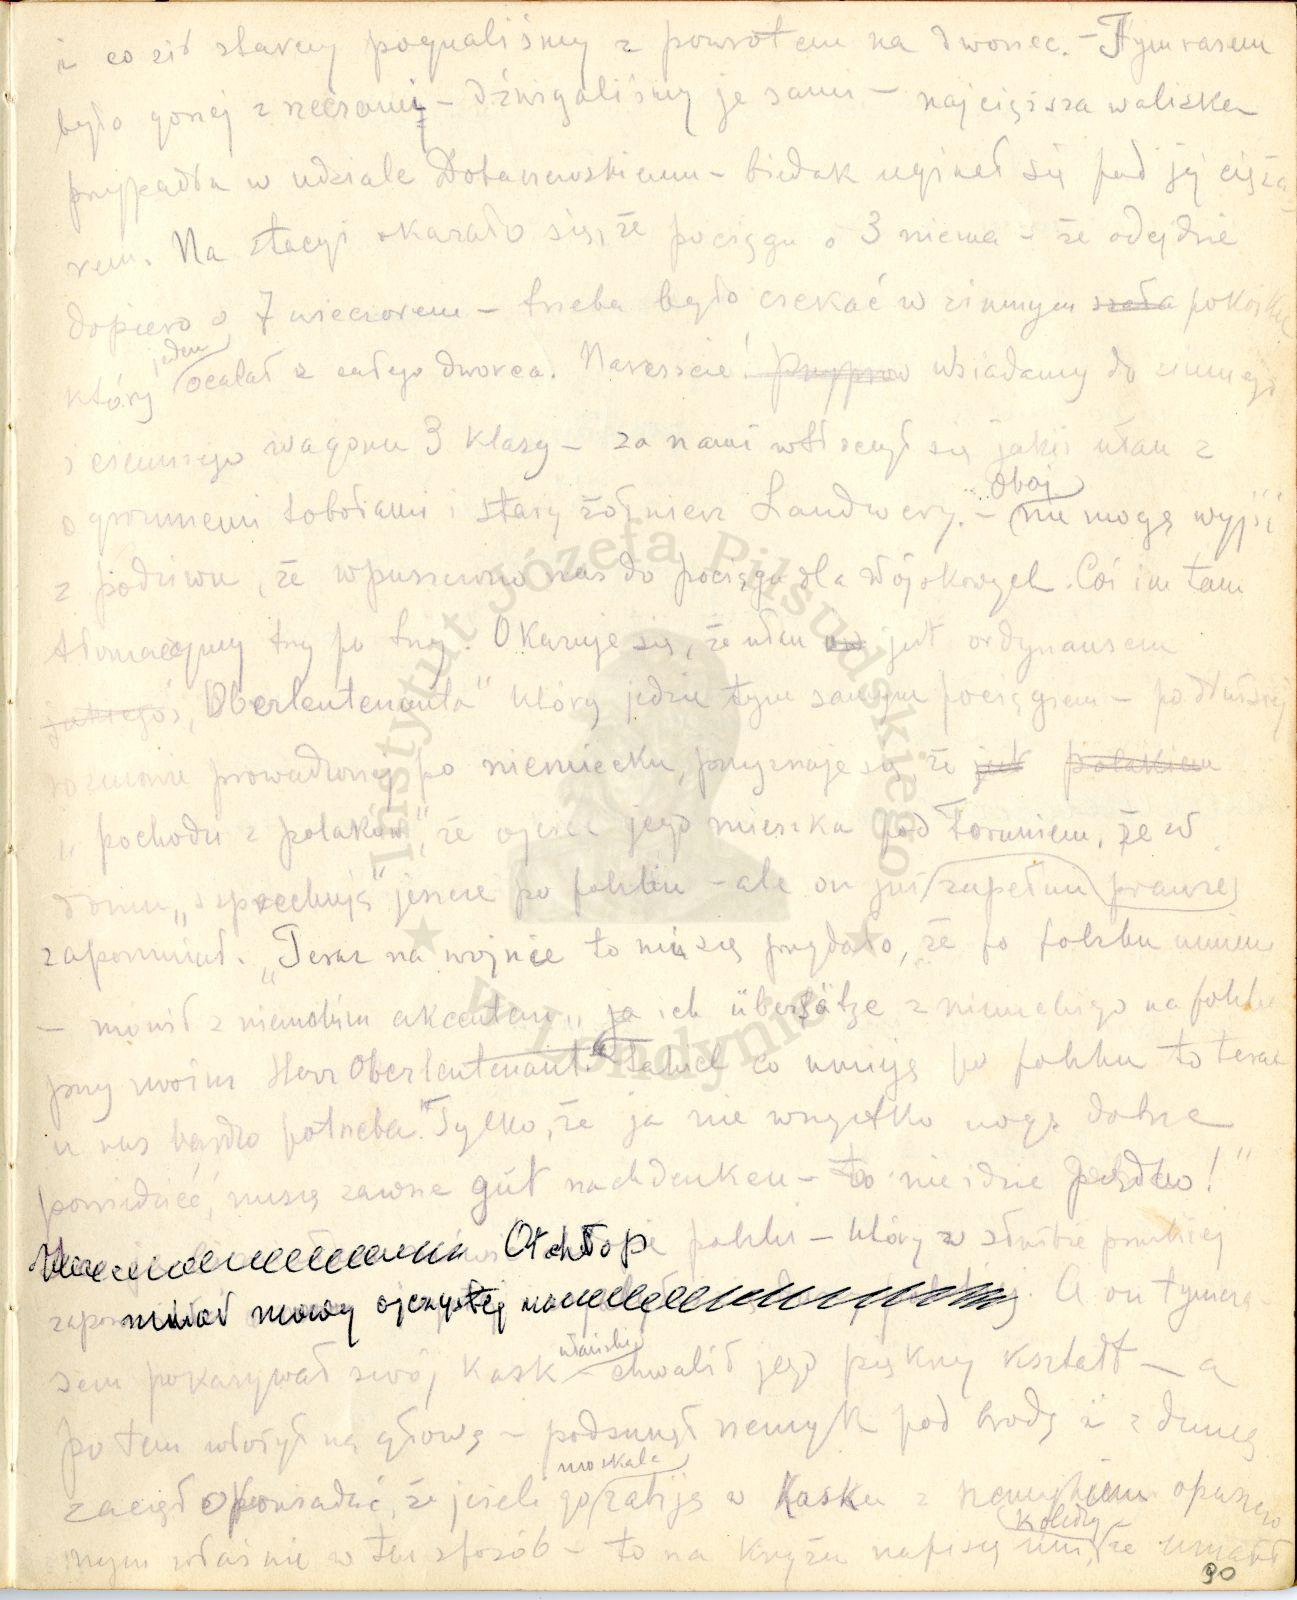 i co sił starczy pognaliśmy z powrotem na dworzec. – Tymrasem
było gorzej z rzeczami – dźwigaliśmy je sami – najcięższa walizka
przypadła w udziale Dobaczewskiemu – biedak uginał się pod jej cięża-
rem. Na stacyi okazało się, że pociągu o 3 niema – że odejdzie
dopiero o 7 wieczorem – trzeba było czekać w zimnym pokoiku
który jeden ocalał z całego dworca. Nareszcie! wsiadamy do zimnego
i ciemnego wagonu 3 klasy – za nami wtłoczył się jakiś ułan z
ogromnemi tobołami i stary żołnierz Landwery. – Obaj nie mogą wyjść
z podziwu, że wpuszczono nas do pociągu dla wojskowych. Coś im tam
tłomaczymy trzy po trzy. Okazuje się, że ułan jest ordynansem
jakiegoś „Oberleutenanta" który jedzie tym samym pociągiem – po dłuższej
rozmowie prowadzonej po niemiecku, przyznaje się, że jest polakiem
„pochodzi z polaków", że ojciec jego mieszka pod Toruniem, że w
domu „szprechują" jeszcze po polsku – ale on już zupełnie prawie
zapomniał. „Teraz na wojnie to mi się przydało, że po polsku umiem
– mówił z niemieckim akcentem „ja ich übersätze z niemieckiego na polskie
przy moim Herr Oberleutenant. Takich co umieją po polsku to teraz
u nas bardzo potrzeba. Tylko, że ja nie wszystko mogę dobrze
powiedzieć, muszę zawsze gut nachdenken – to nie idzie prędko!"
Ot chłop polski – który w służbie pruskiej
zapomniał mowy ojczystej A on tymcza-
sem pokazywał swój kask – chwalił jego piękny kształt – a
potem włożył na głowę – podsunął rzemyk pod brodę i z dumą
zaczął opowiadać, że jeżeli go moskale zabiją w kasku z rzemykiem opuszczo
nym właśnie w ten sposób – to na krzyżu napiszą koledzy, że umarł
90
Instytut Józefa Piłsudskiego
w Londynie